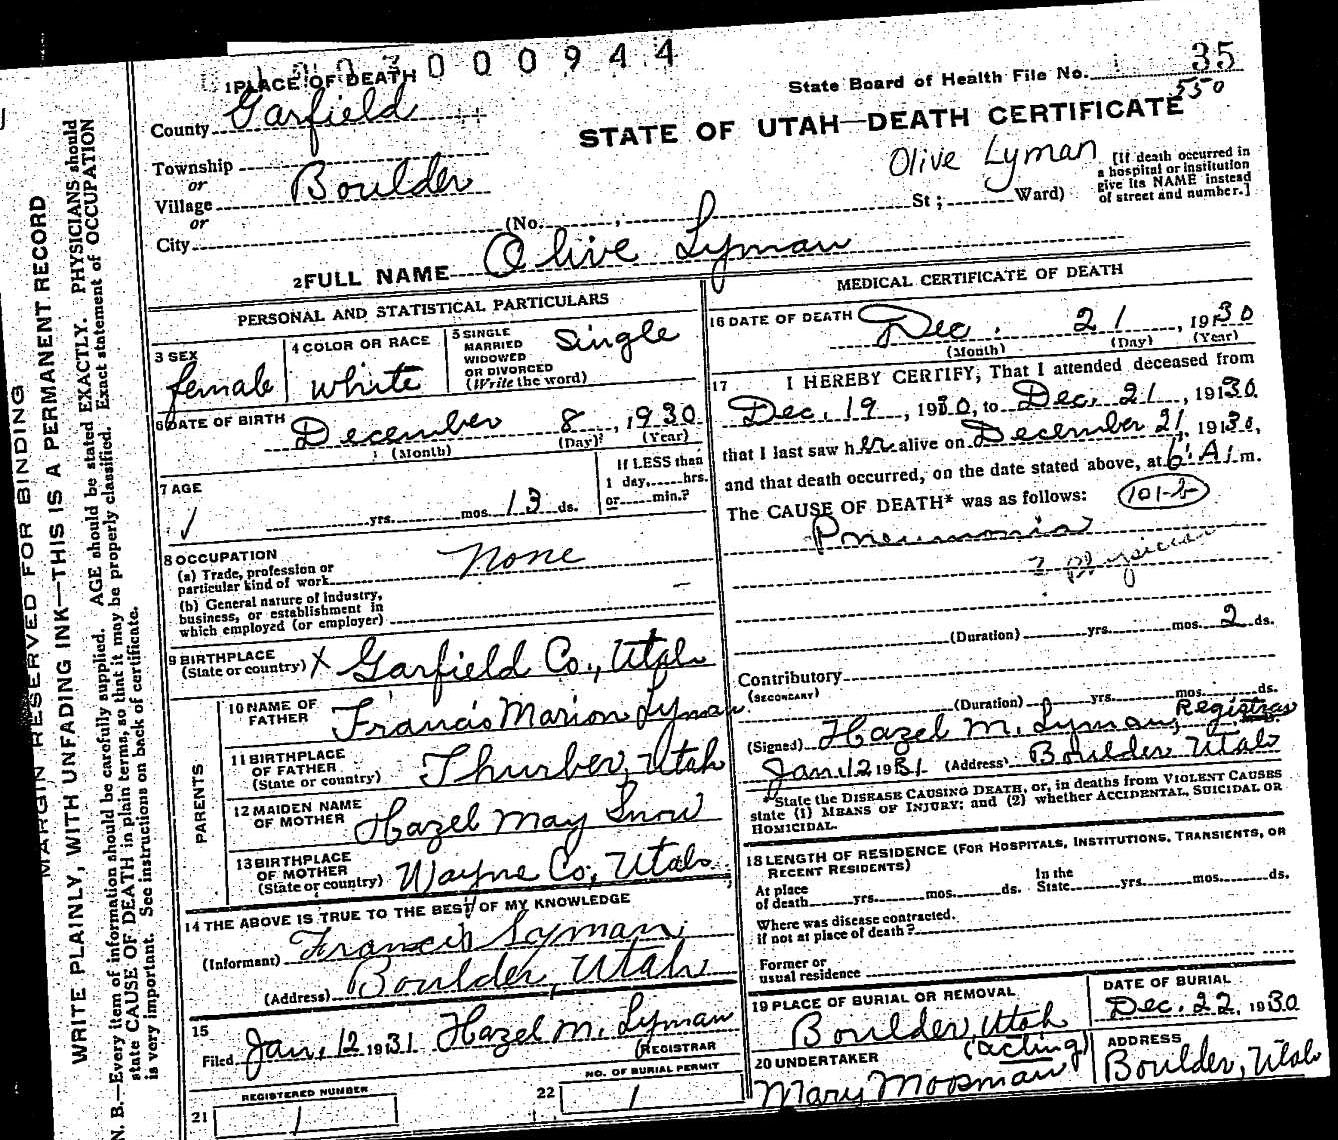 000944
1 PLACE OF DEATH
County Garfield
Township
or
Village Boulder
or
City
(No. St ; Ward)
State Board of Health File No. 35
550
STATE OF UTAH—DEATH CERTIFICATE
Olive Lyman
[If death occurred in
a hospital or institution
give its NAME instead
of street and number.]
2 FULL NAME Olive Lyman
PERSONAL AND STATISTICAL PARTICULARS
3 SEX
female
4 COLOR OR RACE
white
5 SINGLE
MARRIED
WIDOWED
OR DIVORCED
(Write the word)
single
6 DATE OF BIRTH
December 8, 1930
(Month) (Day) (Year)
7 AGE
yrs. mos. 13 ds.
If LESS than
1 day, hrs.
or min.?
8 OCCUPATION
(a) Trade, profession or
particular kind of work
None
(b) General nature of industry,
business, or establishment in
which employed (or employer) —
9 BIRTHPLACE
(State or country) X Garfield Co., Utah
PARENTS
10 NAME OF
FATHER
Francis Marion Lyman
11 BIRTHPLACE
OF FATHER
(State or country) Thurber, Utah
12 MAIDEN NAME
OF MOTHER
Hazel May Snow
13 BIRTHPLACE
OF MOTHER
(State or country) Wayne Co., Utah
14 THE ABOVE IS TRUE TO THE BEST OF MY KNOWLEDGE
(Informant) Francis Lyman
(Address) Boulder, Utah
15
Filed Jan. 12 1931 Hazel M. Lyman
(REGISTRAR
REGISTERED NUMBER
21 1
NO. OF BURIAL PERMIT
22 1
MEDICAL CERTIFICATE OF DEATH
16 DATE OF DEATH Dec. 21, 1930
(Month) (Day) (Year)
17 I HEREBY CERTIFY, That I attended deceased from
Dec. 19, 1930, to Dec. 21, 1930
that I last saw her alive on December 21, 1930,
and that death occurred, on the date stated above, at 6 A.m.
The CAUSE OF DEATH* was as follows: 101-b
Pneumonia
? Physician
(Duration) yrs. mos. 2 ds.
Contributory
(SECONDARY)
(Duration) yrs. mos. ds.
(Signed) Hazel M. Lyman, Registrar
Jan. 12 1931 (Address) Boulder Utah
*State the DISEASE CAUSING DEATH, or, in deaths from VIOLENT CAUSES
state (1) MEANS OF INJURY; and (2) whether ACCIDENTAL, SUICIDAL OR
HOMICIDAL.
18 LENGTH OF RESIDENCE (FOR HOSPITALS, INSTITUTIONS, TRANSIENTS, OR
RECENT RESIDENTS)
At place
of death yrs. mos. ds.
In the
State yrs. mos. ds.
Where was disease contracted.
if not at place of death?
Former or
usual residence
19 PLACE OF BURIAL OR REMOVAL
Boulder, Utah
DATE OF BURIAL
Dec. 22, 1930
20 UNDERTAKER (acting)
Mary Moosman
ADDRESS
Boulder, Utah
MARGIN RESERVED FOR BINDING
WRITE PLAINLY, WITH UNFADING INK—THIS IS A PERMANENT RECORD
N. B.—Every item of information should be carefully supplied. AGE should be stated EXACTLY. PHYSICIANS should
state CAUSE OF DEATH in plain terms, so that it may be properly classified. Exact statement of OCCUPATION
is very important. See instructions on back of certificate.